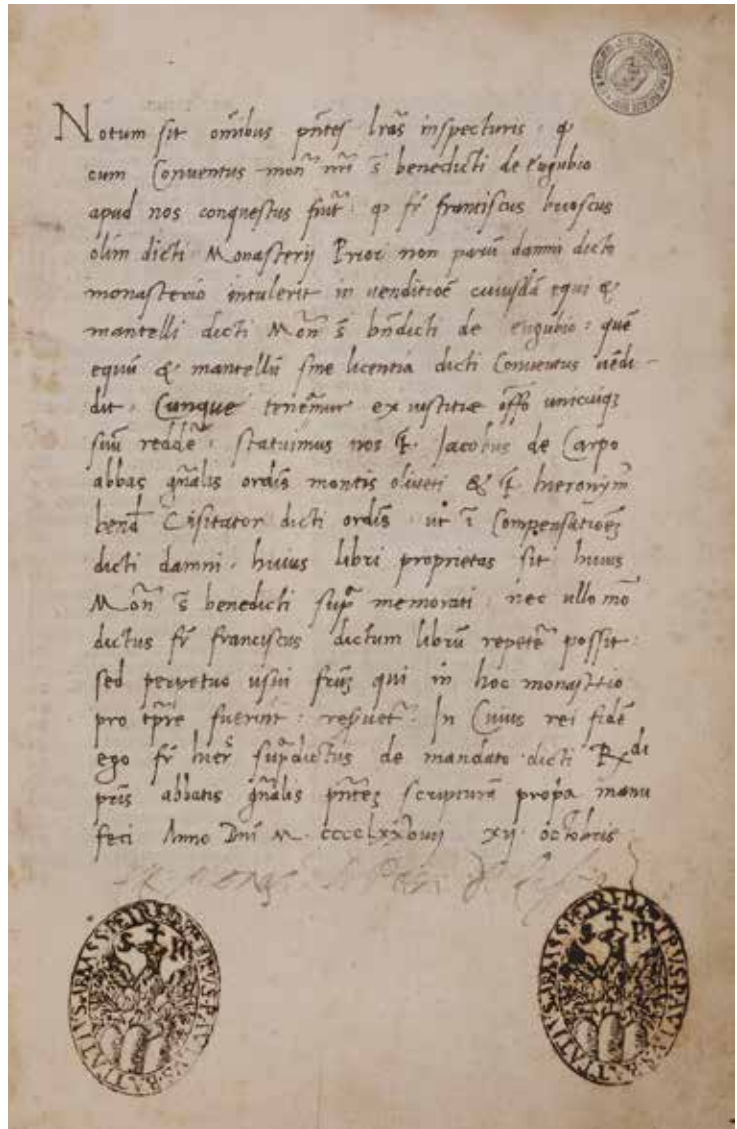 Notum sit om̃ibus pñtes lras̃ inspecturis · ꝙ
cum Conuentus mon̄ nr̄i s̄ benedicti de eugubio
apud nos conquestus fuit̃ · ꝙ fr̄ franciscus
olim dicti Monasterij Prior non parũ damni dicto
monasterio intulerit in uenditiõe cuiusdã equi &
mantelli dicti Moñ s̄ bñdicti de eugubio : quẽ
equũ & mantellũ sine licentia dicti Conuentus uẽdi-
dit · Cunque tenẽmur ex iustitiæ offõ unicuiqꝫ
suũ reddẽ · statuimus nos f̃. Jacobus de Carpo
abbas gñalis ordĩs montis oliueti & f̃. hieronym̃
Uisitator dicti ordĩs · ut ĩ Compensatiõeꝫ
dicti damni · huius libri proprietas sit huius
Moñ s̄ benedicti sup̃ memorati · nec ullo mõ
dictus fr̄ franciscus dictum librũ repetẽ possit ·
sed perpetuo usui frũꝫ qui in hoc monast̃io
pro tp̃re fuerint : reseruet̃ · In Cuius rei fidẽ
ego fr̄ hier̃ sup̃dictus de mandato dicti Rx̃di
pr̃is abbatis gñalis pñteꝫ scripturã prop̃a manu
feci Anno Dñi M. cccclxxxviiij xij · octobris
S P
S P